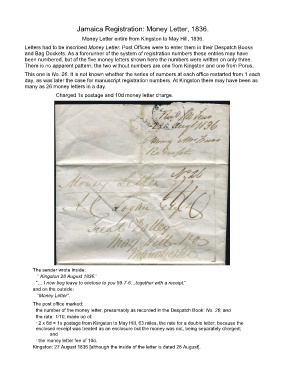 Jamaica Registration: Money Letter, 1836.
Money Letter entire from Kingston to May Hill, 1836.
Letters had to be inscribed Money Letter: Post Offices were to enter them in their Despatch Books
and Bag Dockets. As a forerunner of the system of registration numbers these entries may have
been numbered, but of the five money letters shown here the numbers were written on only three.
There is no apparent pattern; the two without numbers are one from Kingston and one from Porus.
This one is No. 26. It is not known whether the series of numbers at each office restarted from 1 each
day, as was later the case for manuscript registration numbers. At Kingston there may have been as
many as 26 money letters in a day.
Charged 1s postage and 10d money letter charge.
1836
Money Letter No 26
Logan Esq
May Hill
The sender wrote inside:
" Kingston 28 August 1836."
"... I now beg leave to enclose to you 59-7-6...together with a receipt,"
and on the outside:
"Money Letter".
The Post office marked:
the number of the money letter, presumably as recorded in the Despatch Book: No. 26, and
the rate: 1/10, made up of:
2 x 6d = 1s postage from Kingston to May Hill, 63 miles, the rate for a double letter, because the
enclosed receipt was treated as an enclosure but the money was not, being separately charged;
and
the money letter fee of 10d.
Kingston: 27 August 1836 [although the inside of the letter is dated 28 August].